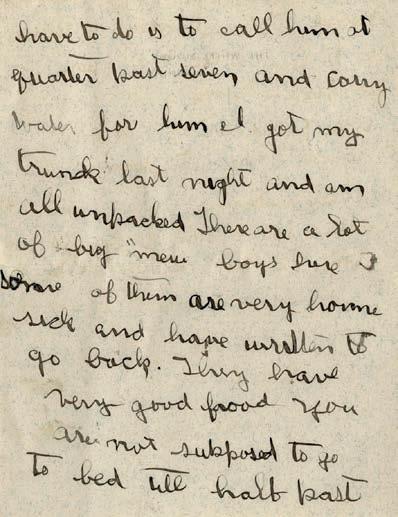 have to do is to call him at
quarter past seven and carry
water for him I got my
trunck last night and am
all unpacked There are a lot
of big "new boys here &
some of them are very home
sick and have written to
go back. They have
very good food You
are not supposed to go
to bed till half past